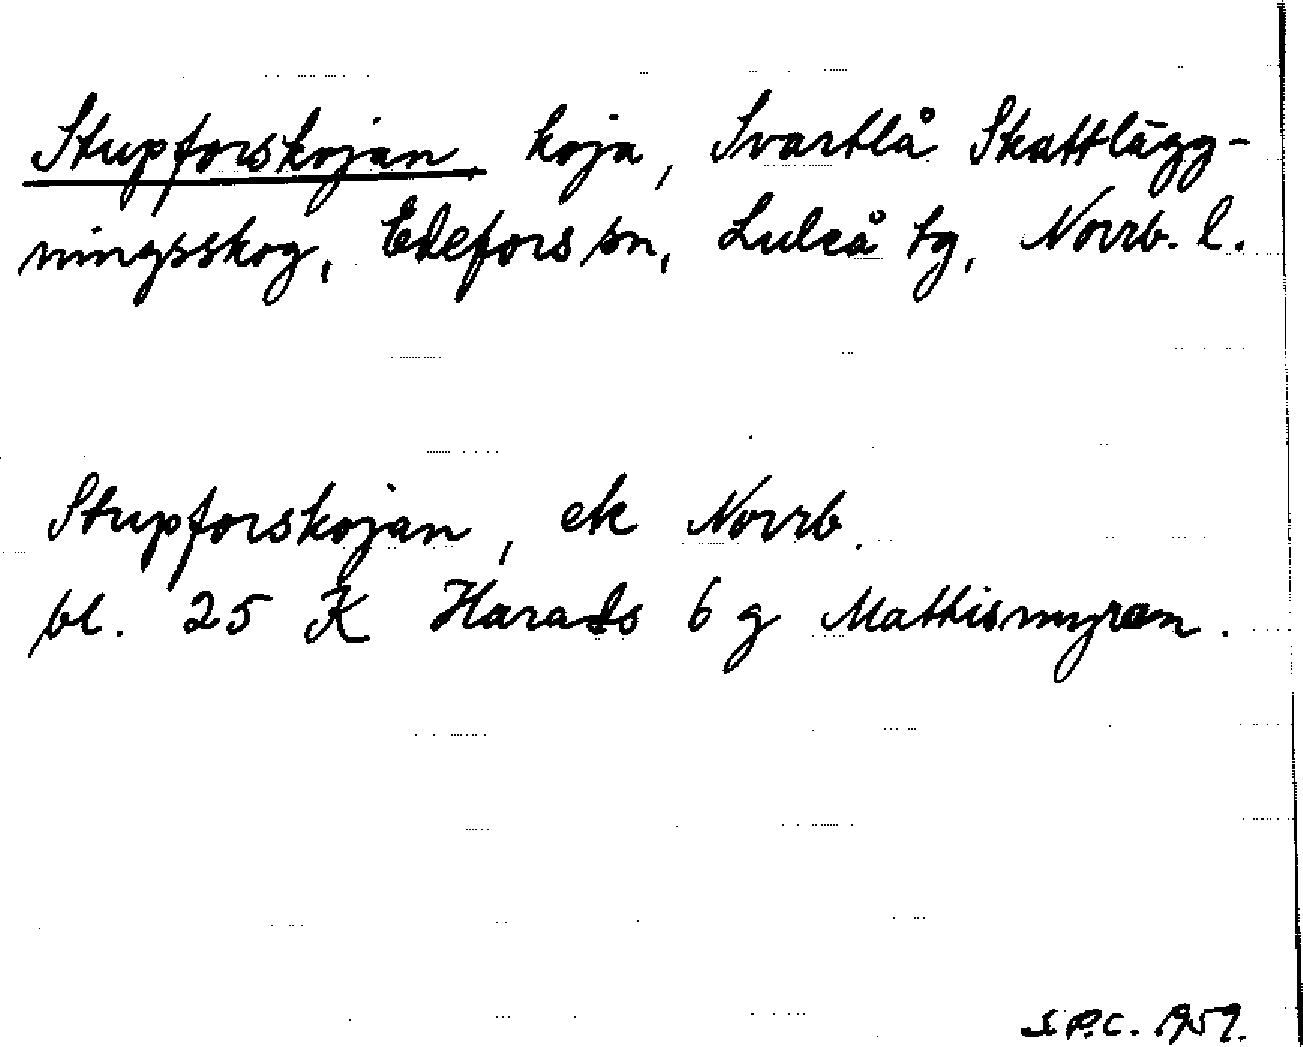 Stupforskojan, koja, Svartlå Skattlägg-
ningsskog, Edefors sn, Luleå tg, Norrb. l.
Stupforskojan, ek Norrb.
bl. 25 K Harads 6 g Mattismyran.
S.P.C. 1959.